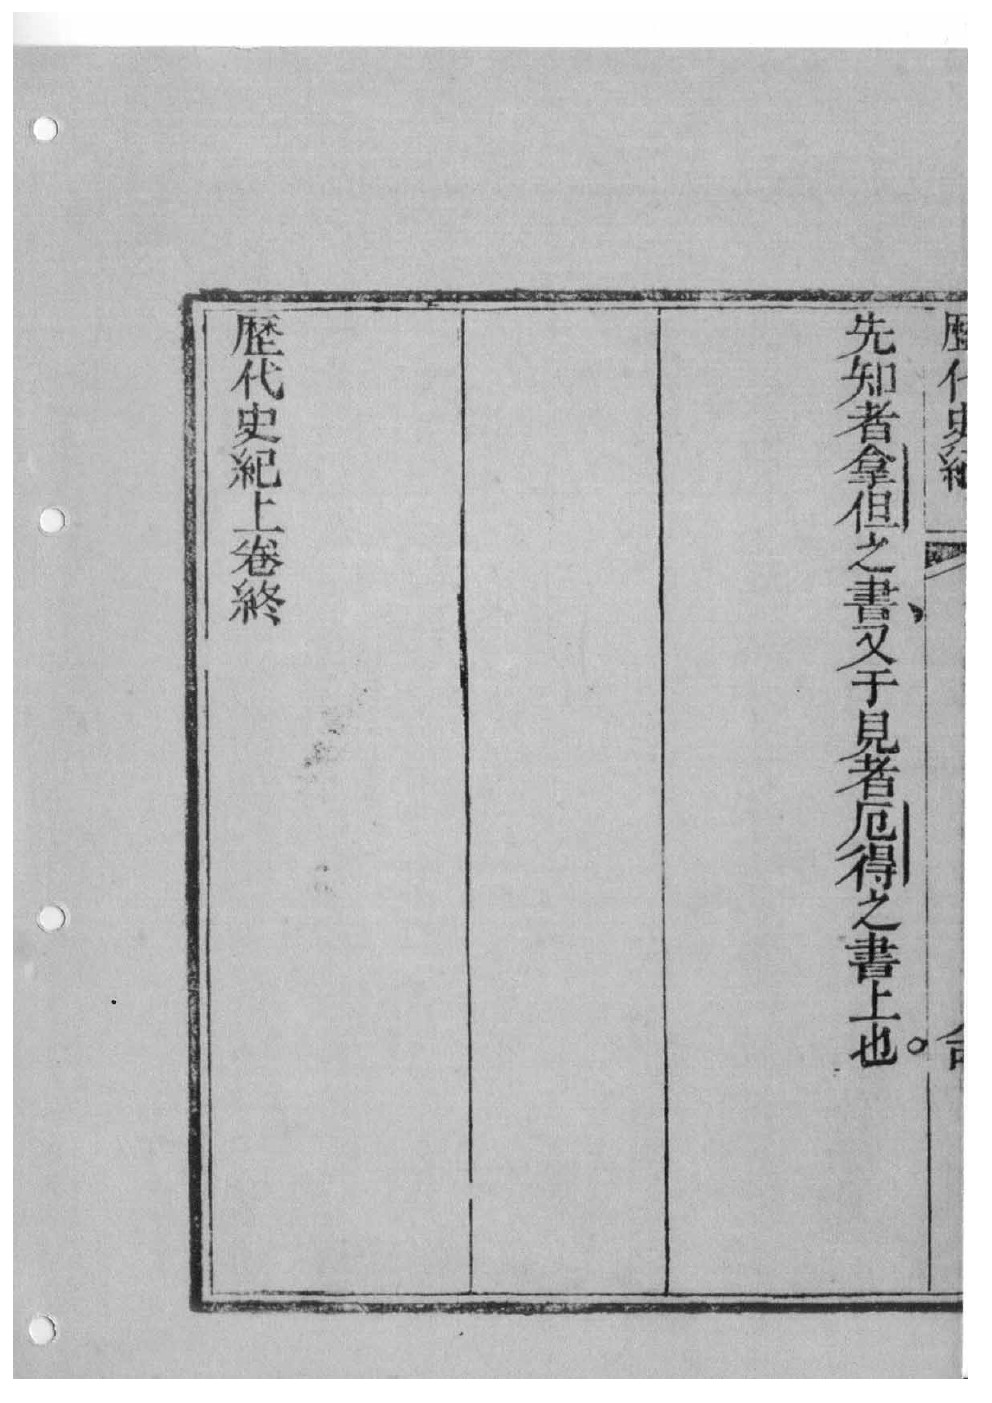 歴代史紀
先知者拿但之書、又于見者厄得之書上也。
歴代史紀上卷終